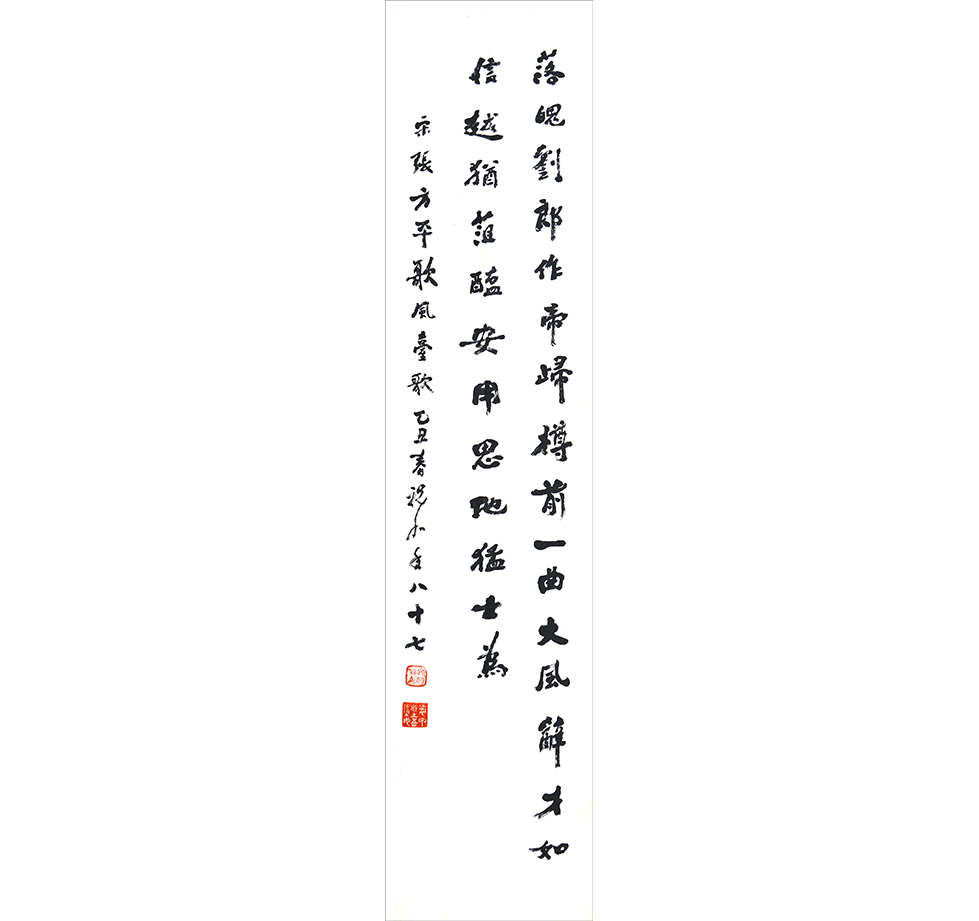 落魄劉郎作帝歸樽前一曲大風辭才如
信越猶菹醢安用思他猛士為
宋張方平歌風臺歌乙丑春祝嘉年八十七